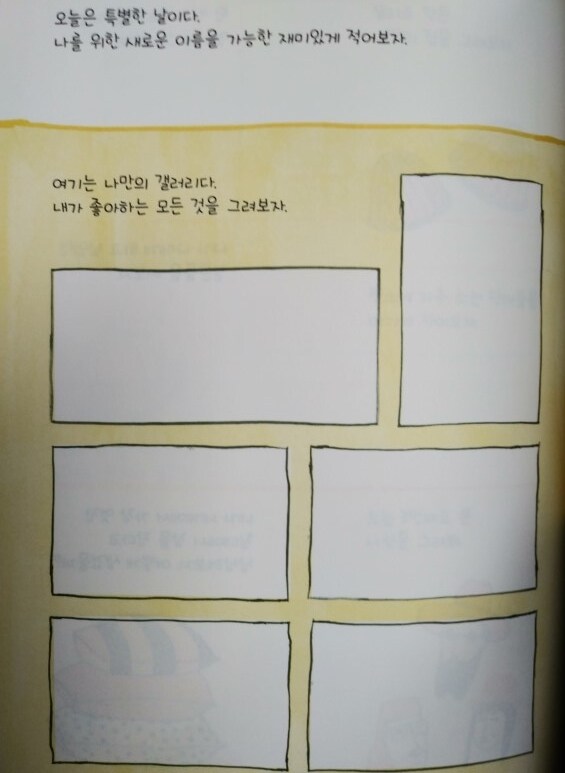 오늘은 특별한 날이다.
나를 위한 새로운 이름을 가능한 재미있게 적어보자.
여기는 나만의 갤러리다.
내가 좋아하는 모든 것을 그려보자.